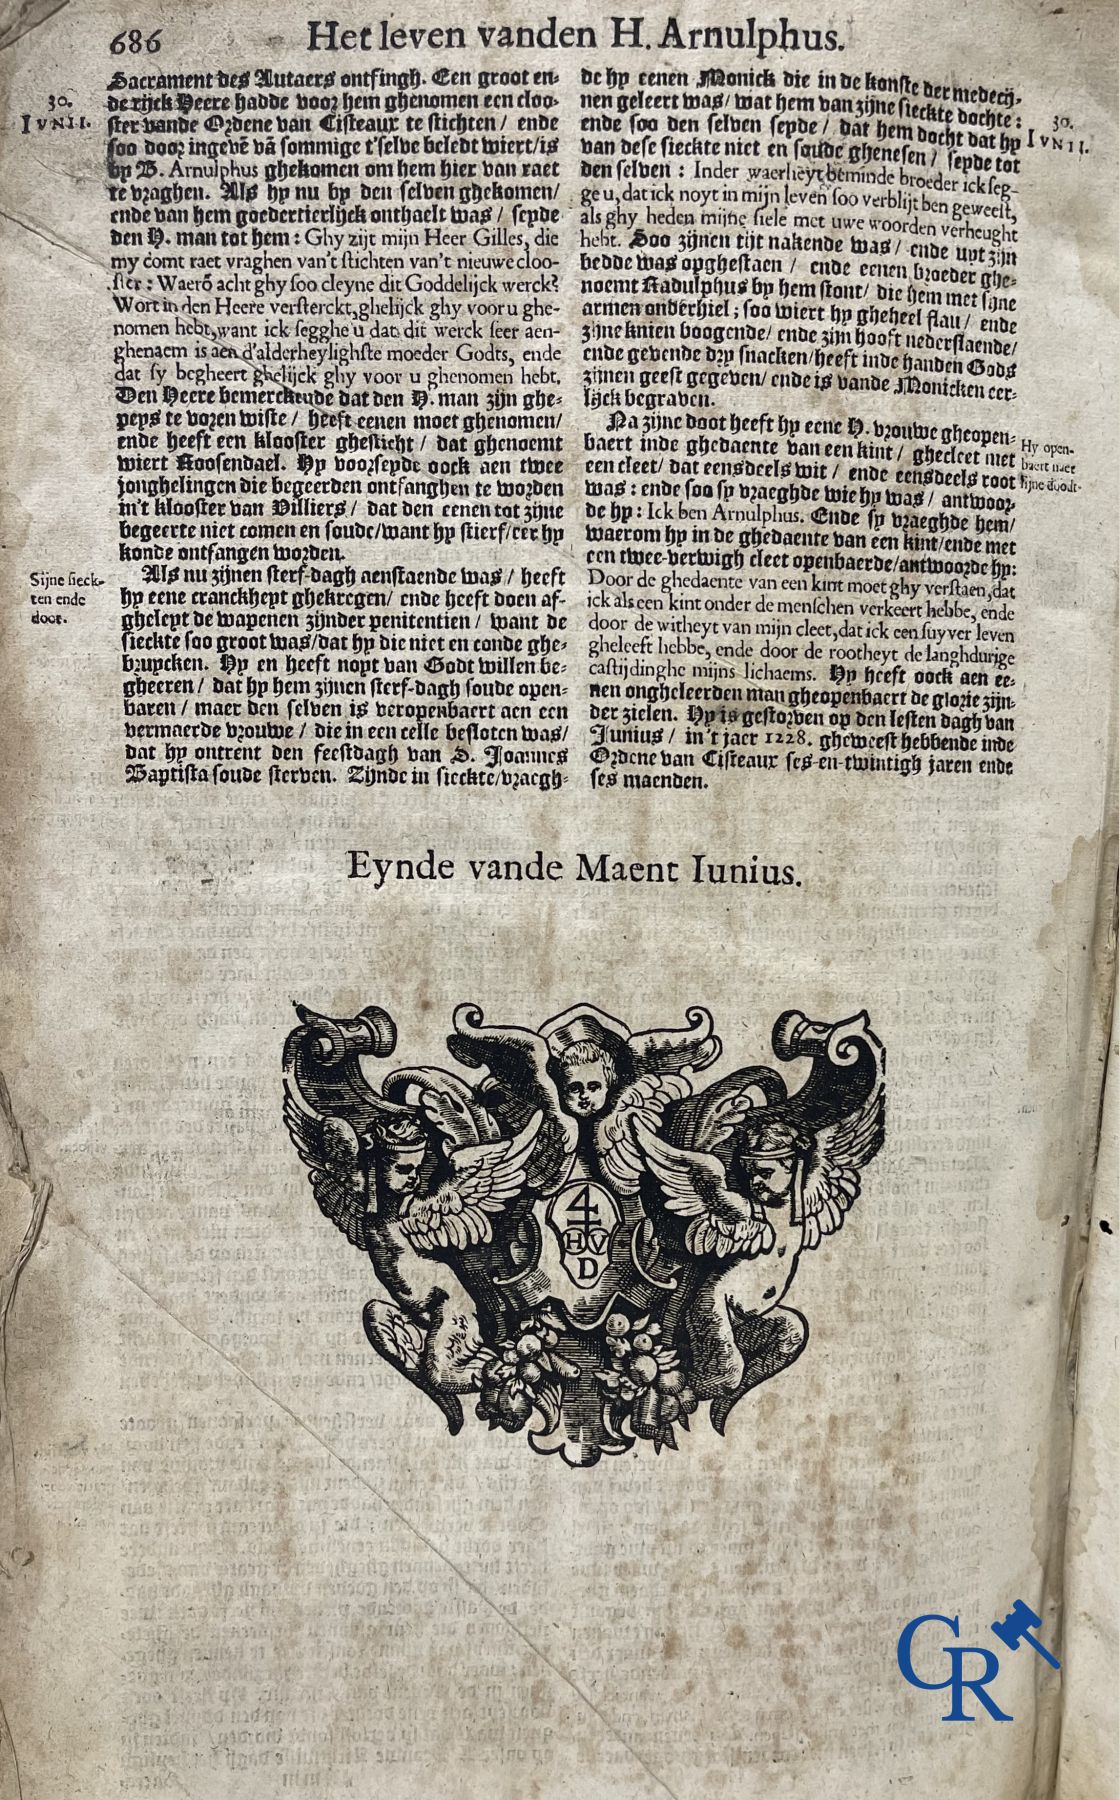 686
Het leven vanden H. Arnulphus.
30.
IVNII.
Sacrament des Autaers ontfingh. Een groot en-
de rijck Heere hadde voor hem ghenomen een cloo-
ster vande Ordene van Cisteaux te stichten / ende
soo door ingevē vā sommige t'selve beledt wiert/is
by B. Arnulphus ghekomen om hem hier van raet
te vraghen. Als hy nu by den selven ghekomen/
ende van hem goedertierlijck onthaelt was / seyde
den H. man tot hem : Ghy zijt mijn Heer Gilles, die
my comt raet vraghen van't stichten van't nieuwe cloo-
ster : Waerō acht ghy soo cleyne dit Goddelijck werck?
Wort in den Heere versterckt, ghelijck ghy voor u ghe-
nomen hebt, want ick segghe u dat dit werck seer aen-
ghenaem is aen d'alderheylighste moeder Godts, ende
dat sy begheert ghelijck ghy voor u ghenomen hebt.
Den Heere bemerckende dat den H. man zijn ghe-
peys te voren wiste / heeft eenen moet ghenomen/
ende heeft een klooster ghesticht / dat ghenoemt
wiert Roosendael. Hy voorseyde oock aen twee
jonghelingen die begeerden ontfanghen te worden
in't klooster van Villiers / dat den eenen tot zijne
begeerte niet comen en soude/want hy stierf/eer hy
konde ontfangen worden.
Sijne sieck-
ten ende
doot.
Als nu zijnen sterf-dagh aenstaende was / heeft
hy eene cranckheyt ghekregen/ ende heeft doen af-
gheleyt de wapenen zijnder penitentien / want de
sieckte soo groot was/dat hy die niet en conde ghe-
bruycken. Hy en heeft noyt van Godt willen be-
gheeren / dat hy hem zijnen sterf-dagh soude open-
baren / maer den selven is veropenbaert aen een
vermaerde vrouwe / die in een celle besloten was/
dat hy ontrent den feestdagh van S. Joannes
Baptista soude sterven. Zijnde in sieckte/vraegh-
de hy eenen Monick die in de konste der medecij-
nen geleert was/ wat hem van zijne sieckte dochte :
ende soo den selven seyde / dat hem docht dat hy
van dese sieckte niet en soude ghenesen / seyde tot
den selven : Inder waerheyt beminde broeder ick seg-
ge u, dat ick noyt in mijn leven soo verblijt ben geweest,
als ghy heden mijne siele met uwe woorden verheught
hebt. Soo zijnen tijt nakende was / ende uyt zijn
bedde was opghestaen / ende eenen broeder ghe-
noemt Radulphus by hem stont/ die hem met sijne
armen onderhiel ; soo wiert hy gheheel flau / ende
zijne knien boogende/ ende zijn hooft nederslaende/
ende gevende dry snacken/heeft inde handen Gods
zijnen geest gegeven/ ende is vande Monicken eer-
lijck begraven.
30.
IVNII.
Na zijne doot heeft hy eene H. vrouwe gheopen-
baert inde ghedaente van een kint / ghecleet met
een cleet/ dat eensdeels wit / ende eensdeels root
was : ende soo sy vraeghde wie hy was / antwoor-
de hy : Ick ben Arnulphus. Ende sy vraeghde hem/
waerom hy in de ghedaente van een kint/ende met
een twee-verwigh cleet openbaerde/antwoorde hy:
Door de ghedaente van een kint moet ghy verstaen, dat
ick als een kint onder de menschen verkeert hebbe, ende
door de witheyt van mijn cleet, dat ick een suyver leven
gheleeft hebbe, ende door de rootheyt de langhdurige
castijdinghe mijns lichaems. Hy heeft oock aen ee-
nen ongheleerden man gheopenbaert de glorie zijn-
der zielen. Hy is gestorven op den lesten dagh van
Junius / in't jaer 1228. gheweest hebbende inde
Ordene van Cisteaux ses-en-twintigh jaren ende
ses maenden.
Hy open-
baert naer
sijne doodt.
Eynde vande Maent Iunius.
4
HV
D
CR